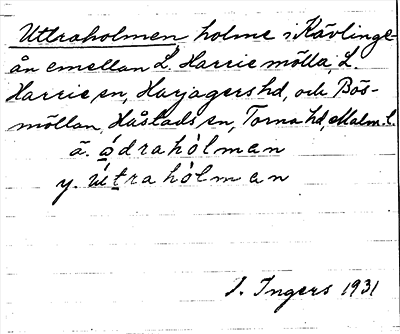 Uttraholmen holme i Kävlinge-
ån emellan L. Harrie mölla, L.
Harrie sn, Harjagers hd, och Bös-
möllan, Håstads sn, Torna hd, Malm. l.
ä. ødrahòlman
y. ùtrahòlman
I. Ingers 1931